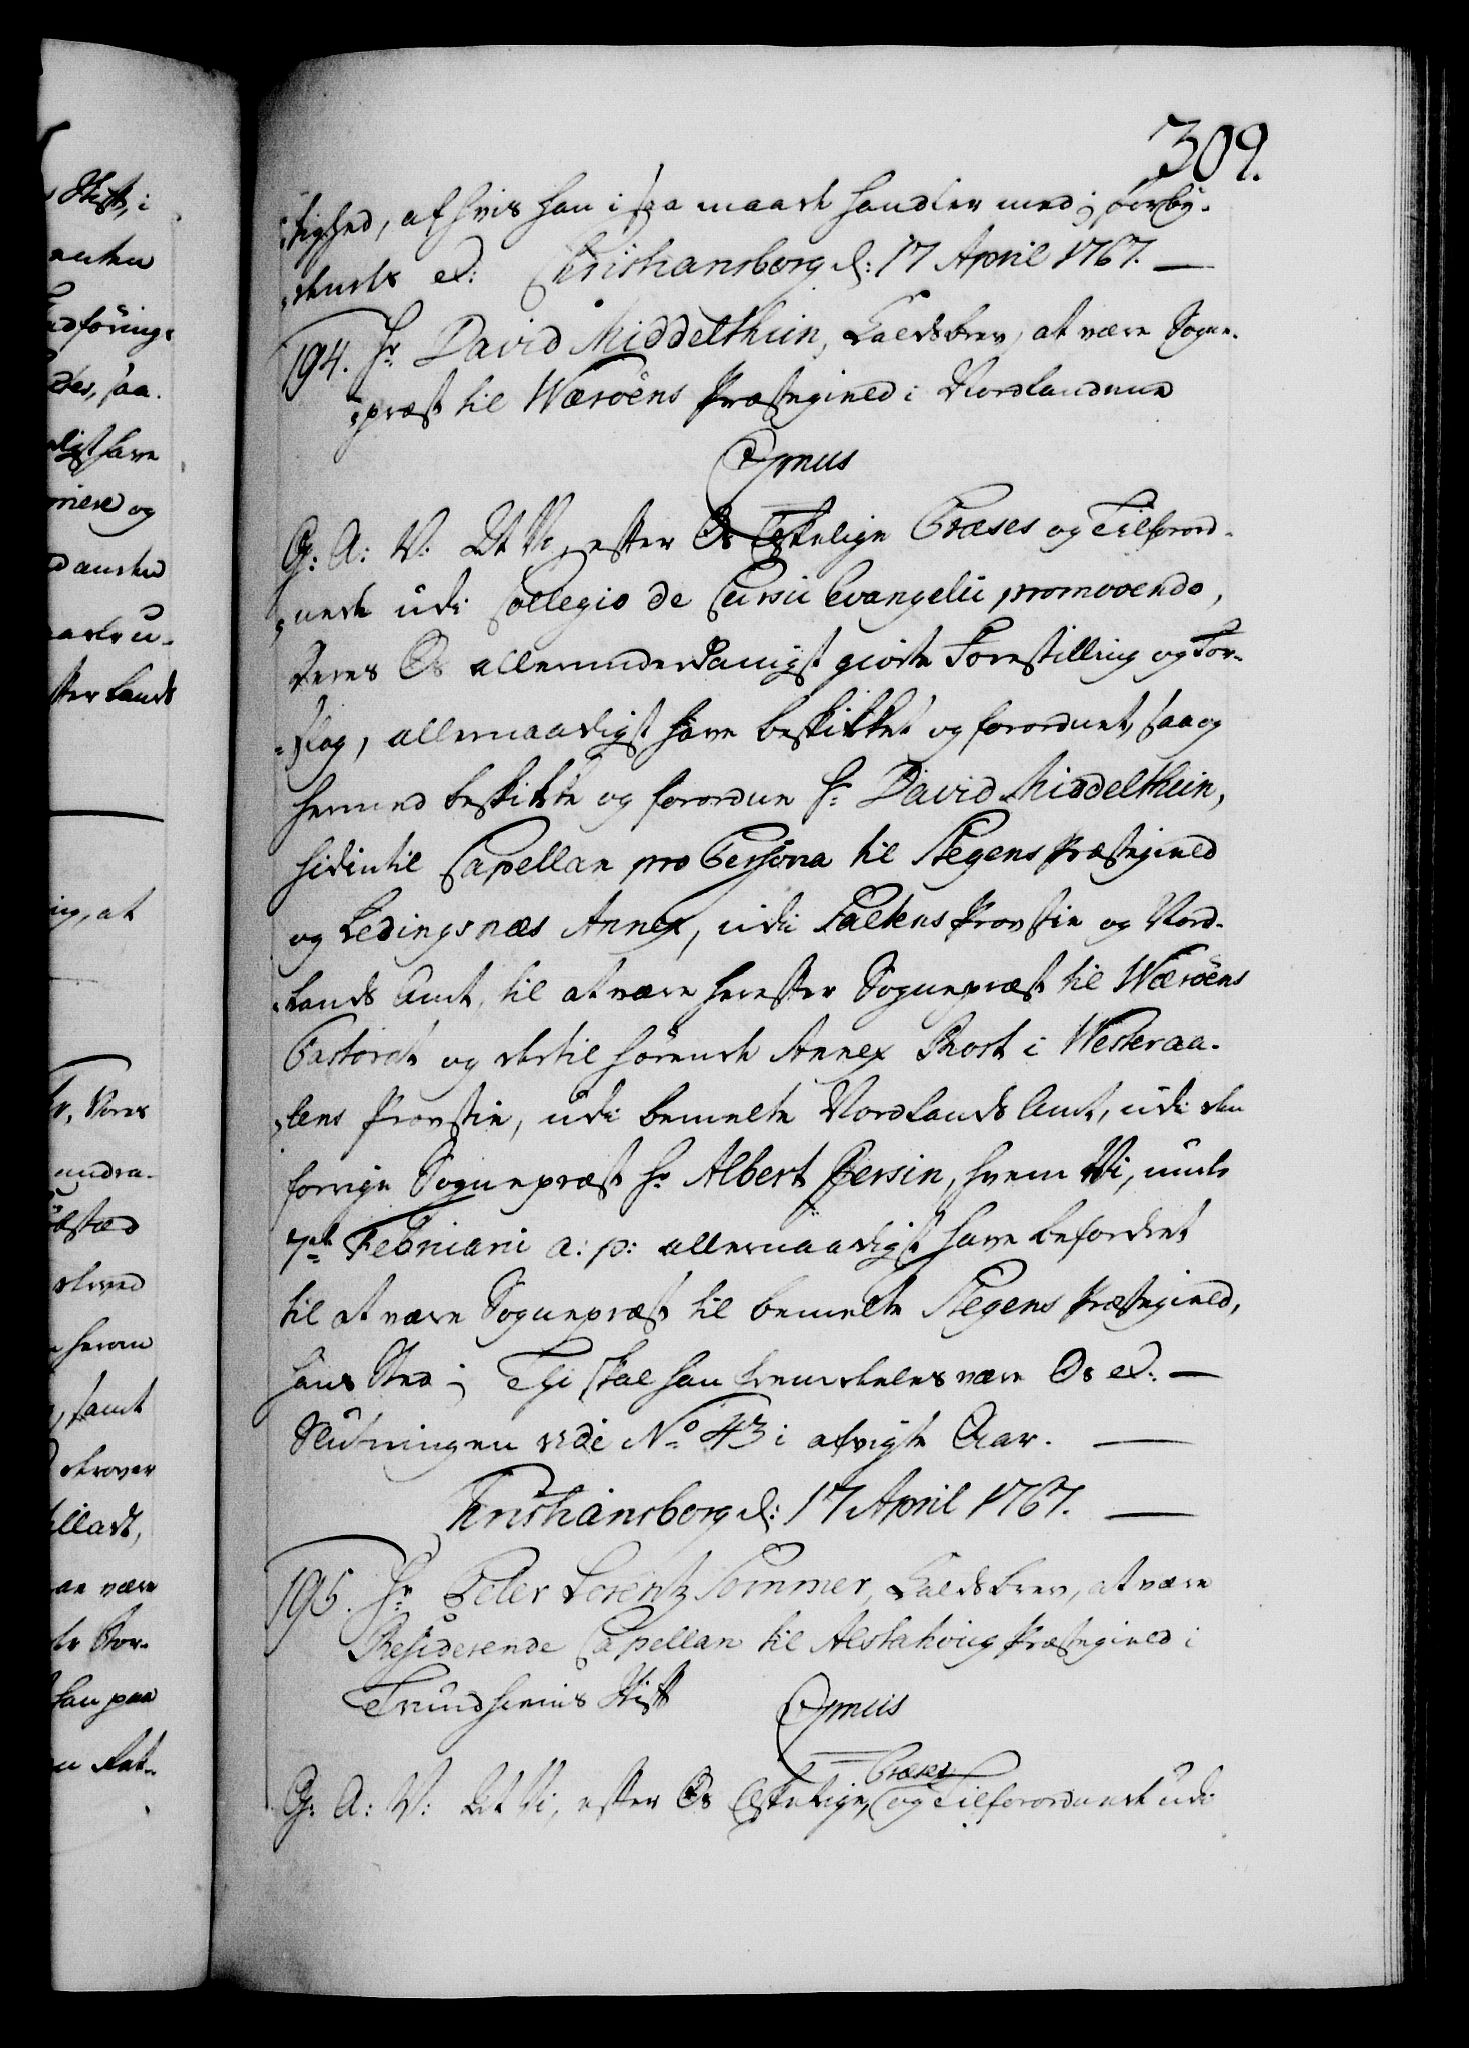 309.
tighed, af hvis han i saa maade handler med; forby-
dendes etc: Christiansborg d: 17 April 1767. —
194. Hr David Middelthun, Kaldsbrev, at være Sogne-
præst til Wærøens Præstegield i Nordlandene
Cymus
G: A: V: At Vi, efter Os Elskelige Præses og Tilforord-
nede udi Collegio de Cursu Evangelii promovendo,
deres Os allerunderdanigst giorte Forestilling og For-
slag, allernaadigst have beskikket og forordnet, saa og
hermed beskikke og forordne Hr David Middelthun,
hidintil Capellan pro Persona til Stegens Præstegield
og Ledingsnæs Annex, udi Saltens Provstie og Nord-
lands Amt, til at være herefter Sognepræst til Wærøens
Pastorat og dertil hørende Annex Rost i Westeraa-
lens Provstie, udi bemelte Nordlands Amt, udi den
forrige Sognepræst Hr Albert Persin, hvem Vi, under
7de Februarii a: p: allernaadigst have befordret
til at være Sognepræst til bemelte Stegens Præstegield,
hans Sted; Thi skal han fremdeles være Os etc: —
Slutningen vide No 43 i afvigte Aar. —
Christiansborg d: 17 April 1767. —
195. Hr Peter Lorentz Sommer, Kaldsbrev, at være
Residerende Capellan til Alstahoug Præstegield i
Trundhiems Stift
Cymus
G: A: V: At Vi, efter Os Elskelige, Præses og Tilforordnede udi